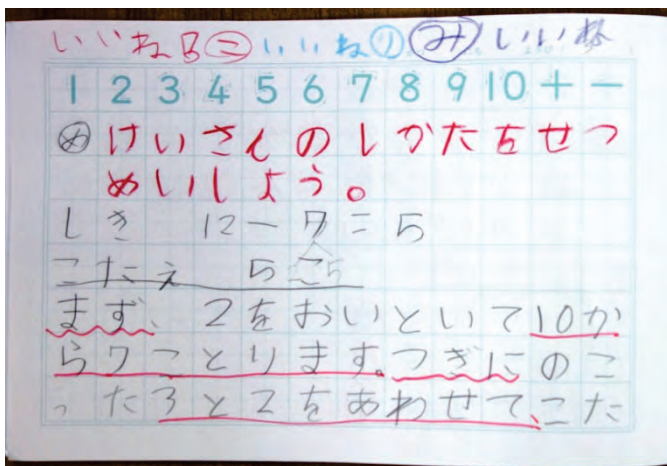 いいね い いいね み いいね
1 2 3 4 5 6 7 8 9 10 + −
め けいさんのしかたをせつ
めいしよう。
しき 12−7=5
こたえ 5こ
まず、2をおいといて10か
ら7ことります。つぎにのこ
った3と2をあわせて、こた